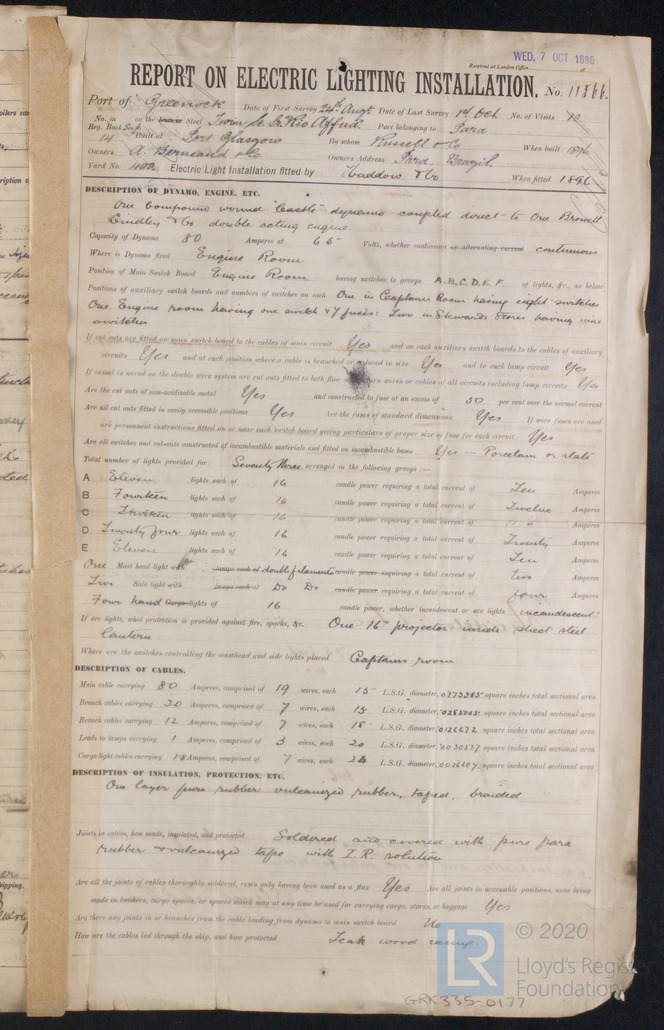 WED. 7 OCT 1896
Received at London Office
REPORT ON ELECTRIC LIGHTING INSTALLATION. No. 11866.
Port of Greenock Date of First Survey 24th Augt Date of Last Survey 1st Oct No. of Visits 10
No. in Reg. Book on the Iron or Steel Twin Sc. Sr. Rio Port belonging to Para
14 Built at Port Glasgow By whom Russell & Co When built 1896
Owners A. & Co. Owners Address Para, Brazil
Yard No. 400 Electric Light Installation fitted by Haddow & Co When fitted 1896
DESCRIPTION OF DYNAMO, ENGINE, ETC.
One Compound wound "Castle" dynamo coupled direct to One
Lindley & Co double acting engine
Capacity of Dynamo 80 Amperes at 65 Volts, whether continuous or alternating current continuous
Where is Dynamo fixed Engine Room
Position of Main Switch Board Engine Room having switches to groups A.B.C.D.E.F. of lights, &c., as below
Positions of auxiliary switch boards and numbers of switches on each One in Captains Room having eight switches
One Engine room having one switch & 7 fuses: Two in Stewards Stores having nine
switches
If cut outs are fitted on main switch board to the cables of main circuit Yes and on each auxiliary switch boards to the cables of auxiliary
circuits Yes and at each position where a cable is branched or reduced in size Yes and to each lamp circuit Yes
If vessel is wired on the double wire system are cut outs fitted to both flow and return wires or cables of all circuits including lamp circuits Yes
Are the cut outs of non-oxidizable metal Yes and constructed to fuse at an excess of 50 per cent over the normal current
Are all cut outs fitted in easily accessible positions Yes Are the fuses of standard dimensions Yes If wire fuses are used
are permanent instructions fitted on or near each switch board giving particulars of proper size of fuse for each circuit Yes
Are all switches and cut-outs constructed of incombustible materials and fitted on incombustible bases Yes - Porcelain or slate
Total number of lights provided for Seventy three arranged in the following groups :—
A Eleven lights each of 16 candle power requiring a total current of Ten Amperes
B Fourteen lights each of 16 candle power requiring a total current of Twelve Amperes
C Thirteen lights each of 16 candle power requiring a total current of Amperes
D Twenty four lights each of 16 candle power requiring a total current of Twenty Amperes
E Eleven lights each of 16 candle power requiring a total current of Ten Amperes
One Mast head light with lamps each of double filaments candle power requiring a total current of two Amperes
Two Side light with lamps each of Do Do candle power requiring a total current of four Amperes
Four hand Cargo lights of 16 candle power, whether incandescent or arc lights incandescent
If arc lights, what protection is provided against fire, sparks, &c. One 16" projector inside sheet steel
lantern
Where are the switches controlling the masthead and side lights placed Captains room
DESCRIPTION OF CABLES.
Main cable carrying 80 Amperes, comprised of 19 wires, each 15 L.S.G. diameter, square inches total sectional area
Branch cables carrying 30 Amperes, comprised of 7 wires, each 15 L.S.G. diameter, square inches total sectional area
Branch cables carrying 12 Amperes, comprised of 7 wires, each 18 L.S.G. diameter, square inches total sectional area
Leads to lamps carrying 1 Amperes, comprised of 3 wires, each 20 L.S.G. diameter, square inches total sectional area
Cargo light cables carrying Amperes, comprised of 7 wires, each 24 L.S.G. diameter, square inches total sectional area
DESCRIPTION OF INSULATION, PROTECTION, ETC.
One layer pure rubber vulcanized rubber, taped, braided
Joints in cables, how made, insulated, and protected Soldered and covered with pure para
rubber & vulcanized tape with I.R. solution
Are all the joints of cables thoroughly soldered, resin only having been used as a flux Yes Are all joints in accessible positions, none being
made in bunkers, cargo spaces, or spaces which may at any time be used for carrying cargo, stores, or baggage Yes
Are there any joints in or branches from the cable leading from dynamo to main switch board No
How are the cables led through the ship, and how protected Teak wood casing.
LR © 2020
Lloyd's Register
Foundation
GRK335-0177